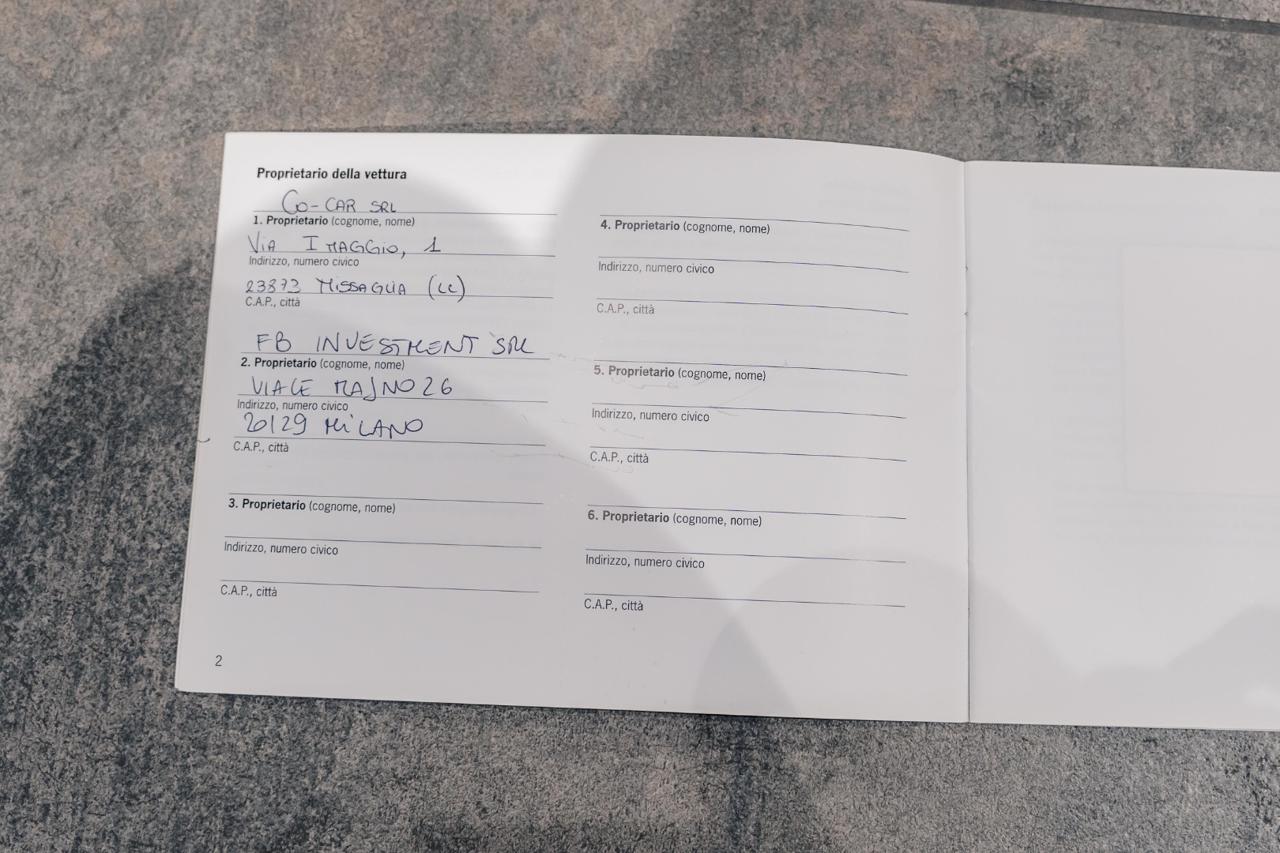 Proprietario della vettura
GO-CAR SRL
1. Proprietario (cognome, nome)
VIA I MAGGIO, 1
Indirizzo, numero civico
23873 MISSAGLIA (LC)
C.A.P., città
FB INVESTMENT SRL
2. Proprietario (cognome, nome)
VIALE MAJNO 26
Indirizzo, numero civico
20129 MILANO
C.A.P., città
3. Proprietario (cognome, nome)
Indirizzo, numero civico
C.A.P., città
4. Proprietario (cognome, nome)
Indirizzo, numero civico
C.A.P., città
5. Proprietario (cognome, nome)
Indirizzo, numero civico
C.A.P., città
6. Proprietario (cognome, nome)
Indirizzo, numero civico
C.A.P., città
2